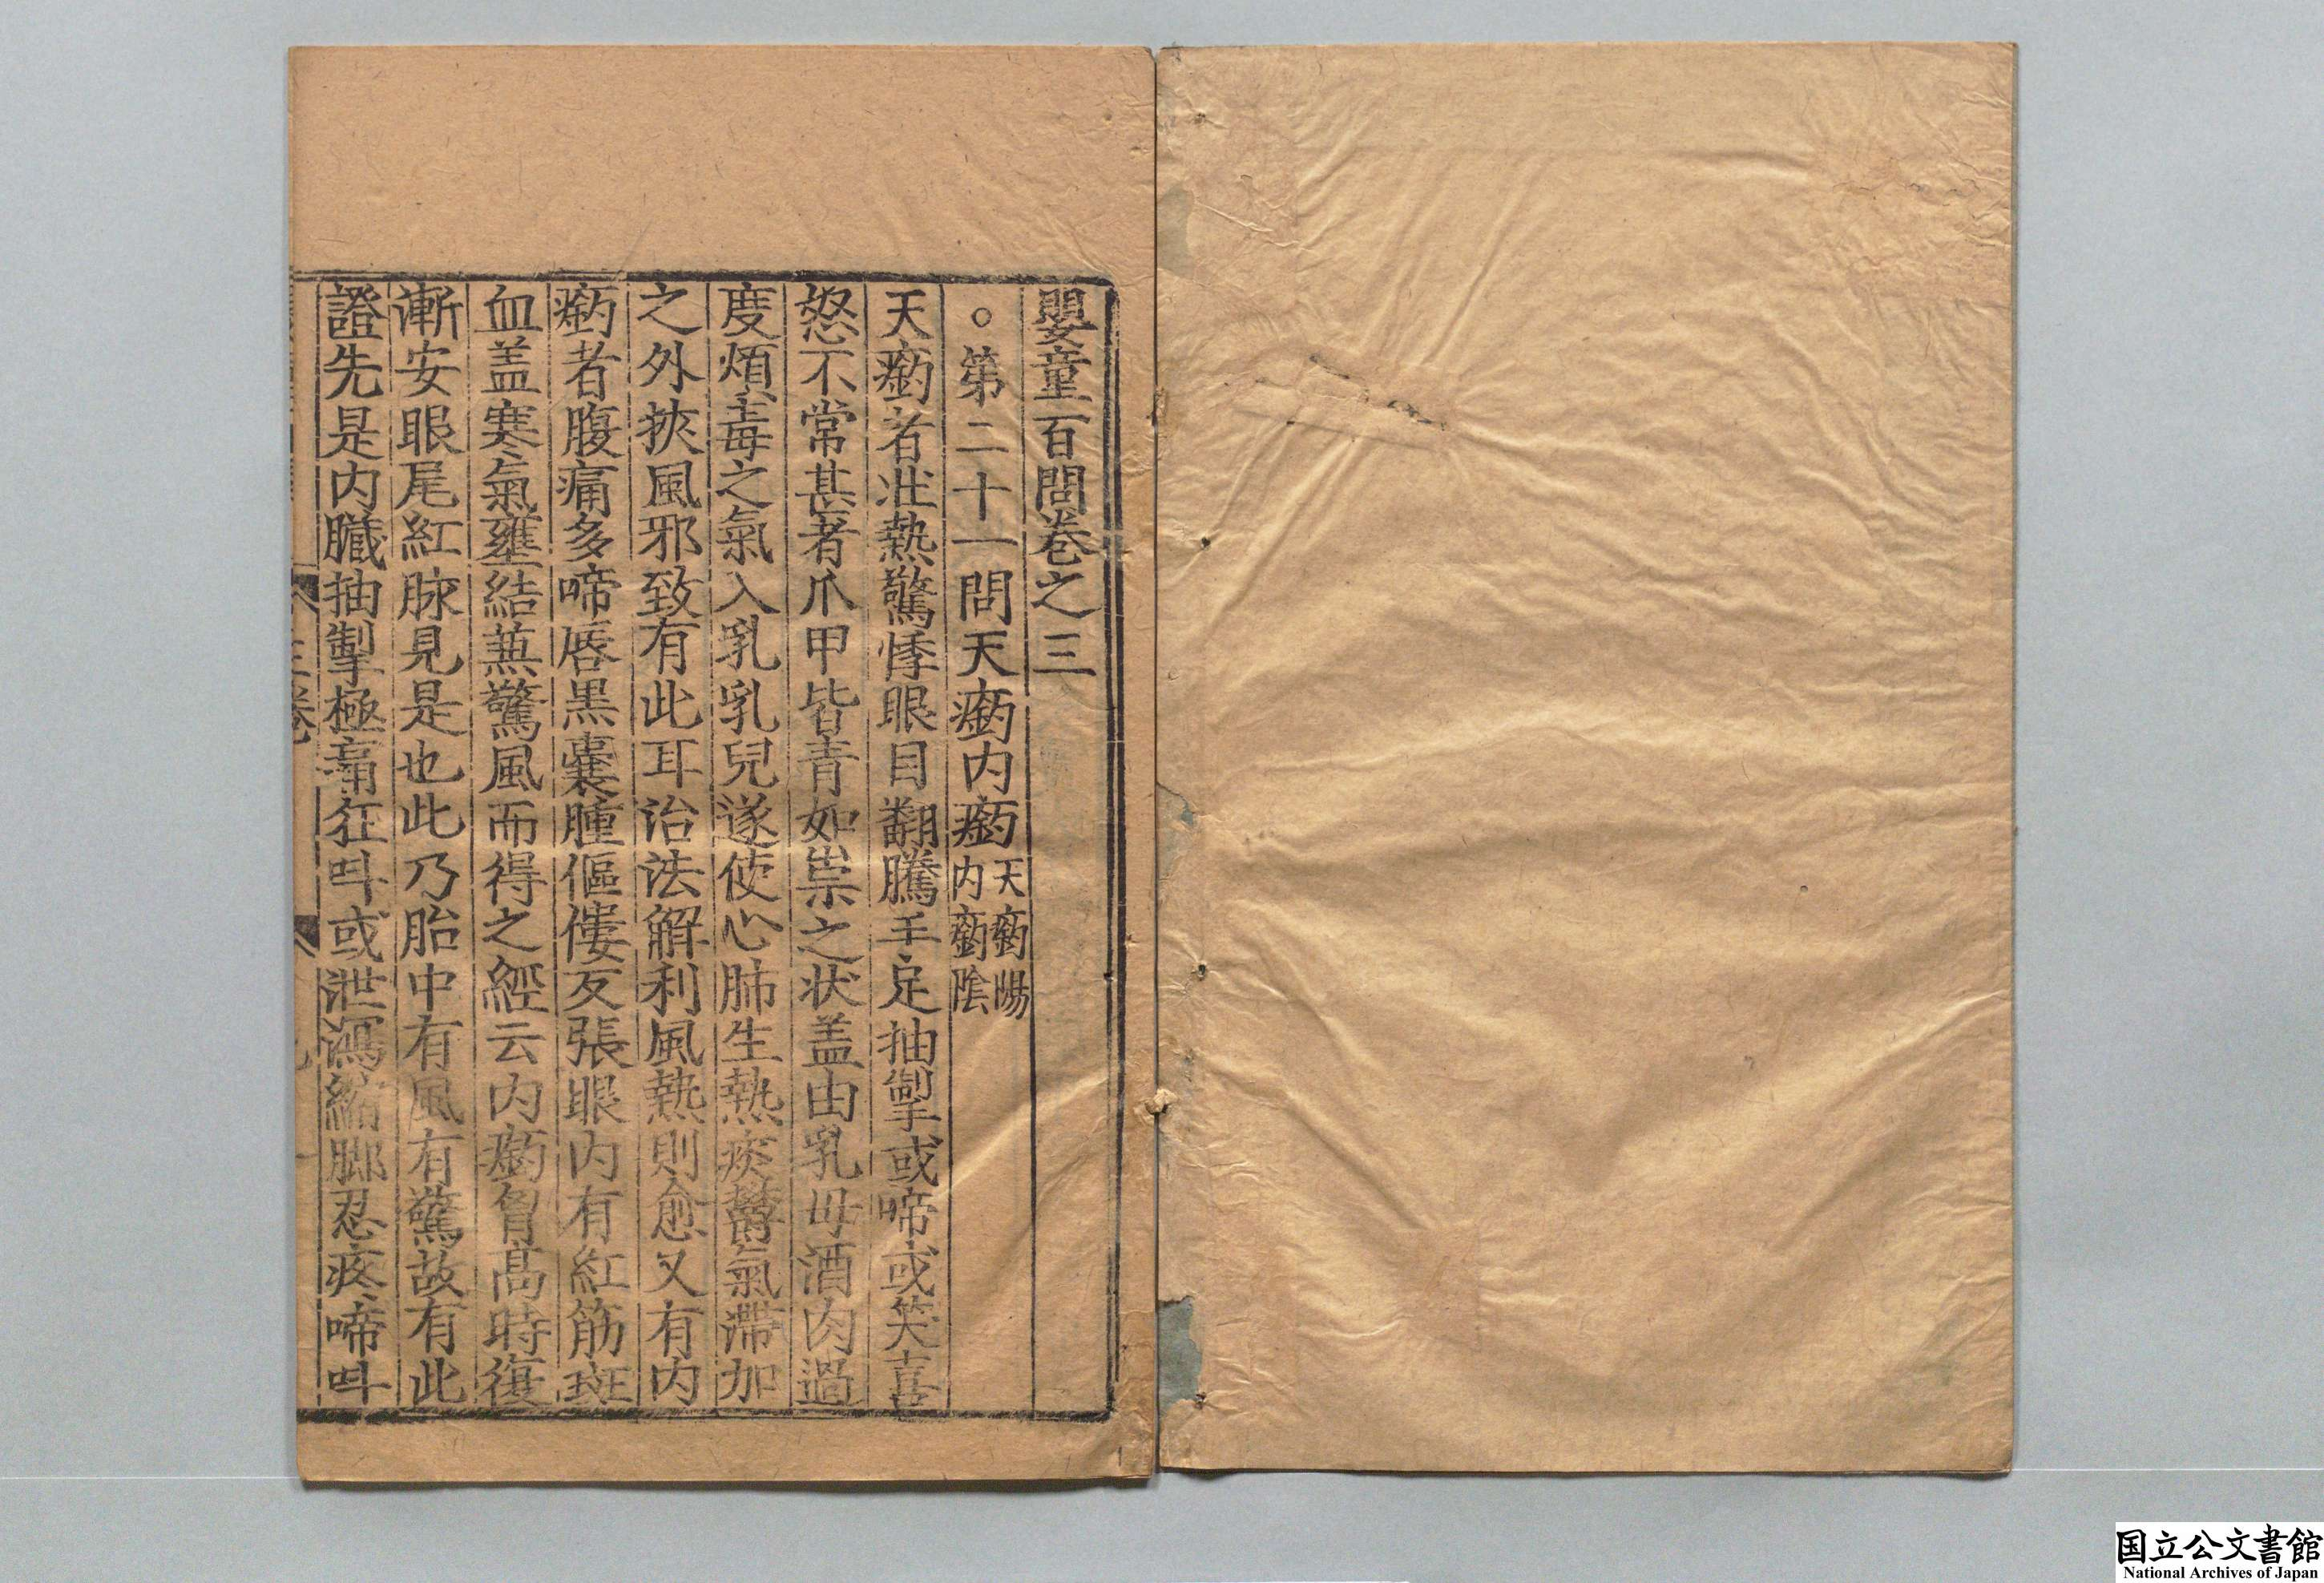 嬰童百問卷之三
○第二十一問天瘹内瘹天瘹陽内瘹陰
天瘹者壯熱驚悸眼目翻騰手足抽掣或啼或笑喜
怒不常甚者爪甲皆青如祟之状盖由乳母酒肉過
度煩毒之氣入乳乳兒遂使心肺生熱痰欝氣滯加
之外挾風邪致有此耳治法解利風熱則愈又有内
瘹者腹痛多啼唇黒囊腫傴僂反張眼内有紅筋斑
血盖寒氣壅結兼驚風而得之經云内瘹胷髙時復
漸安眼尾紅脉見是也此乃胎中有風有驚故有此
證先是内臓抽掣極痛狂呌或泄瀉縮脚忍疼啼呌
三卷
国立公文書館
National Archives of Japan